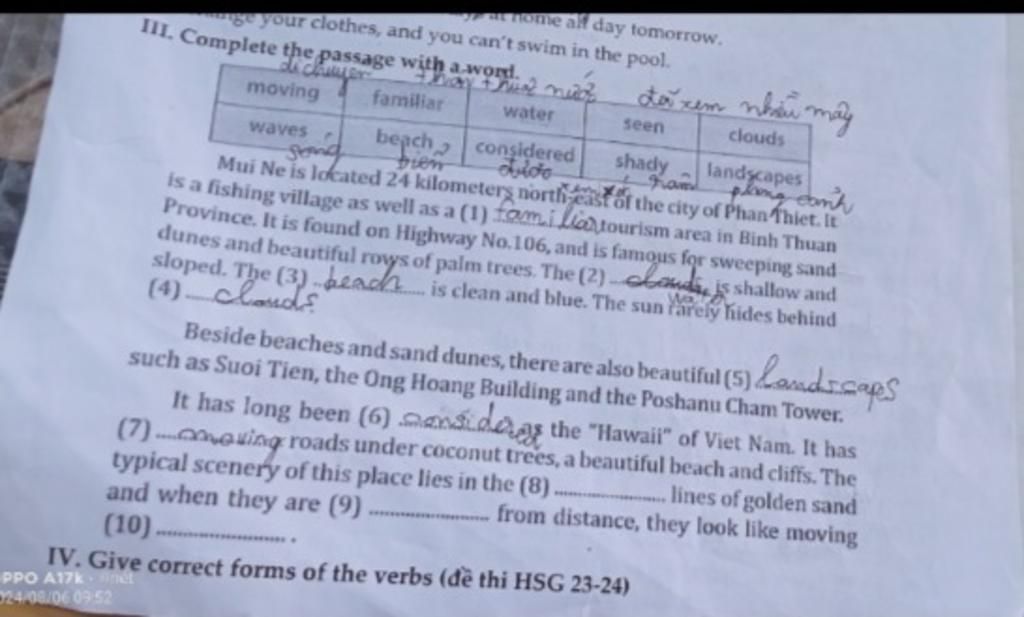 at home all day tomorrow.
nge your clothes, and you can't swim in the pool.
III. Complete the passage with a word.
di chuyển đã xem nhiều mây
moving familiar water seen clouds
waves beach considered shady landscapes
sóng biển
Mui Ne is located 24 kilometers north-east of the city of Phan Thiet. It
is a fishing village as well as a (1) familiar tourism area in Binh Thuan
Province. It is found on Highway No.106, and is famous for sweeping sand
dunes and beautiful rows of palm trees. The (2) is shallow and
sloped. The (3) beach is clean and blue. The sun rarely hides behind
(4) clouds.
Beside beaches and sand dunes, there are also beautiful (5) landscapes
such as Suoi Tien, the Ong Hoang Building and the Poshanu Cham Tower.
It has long been (6) as the "Hawaii" of Viet Nam. It has
(7) moving roads under coconut trees, a beautiful beach and cliffs. The
typical scenery of this place lies in the (8) ........................ lines of golden sand
and when they are (9) ........................ from distance, they look like moving
(10) ........................ .
IV. Give correct forms of the verbs (đề thi HSG 23-24)
PPO A17k
024/08/06 09:52